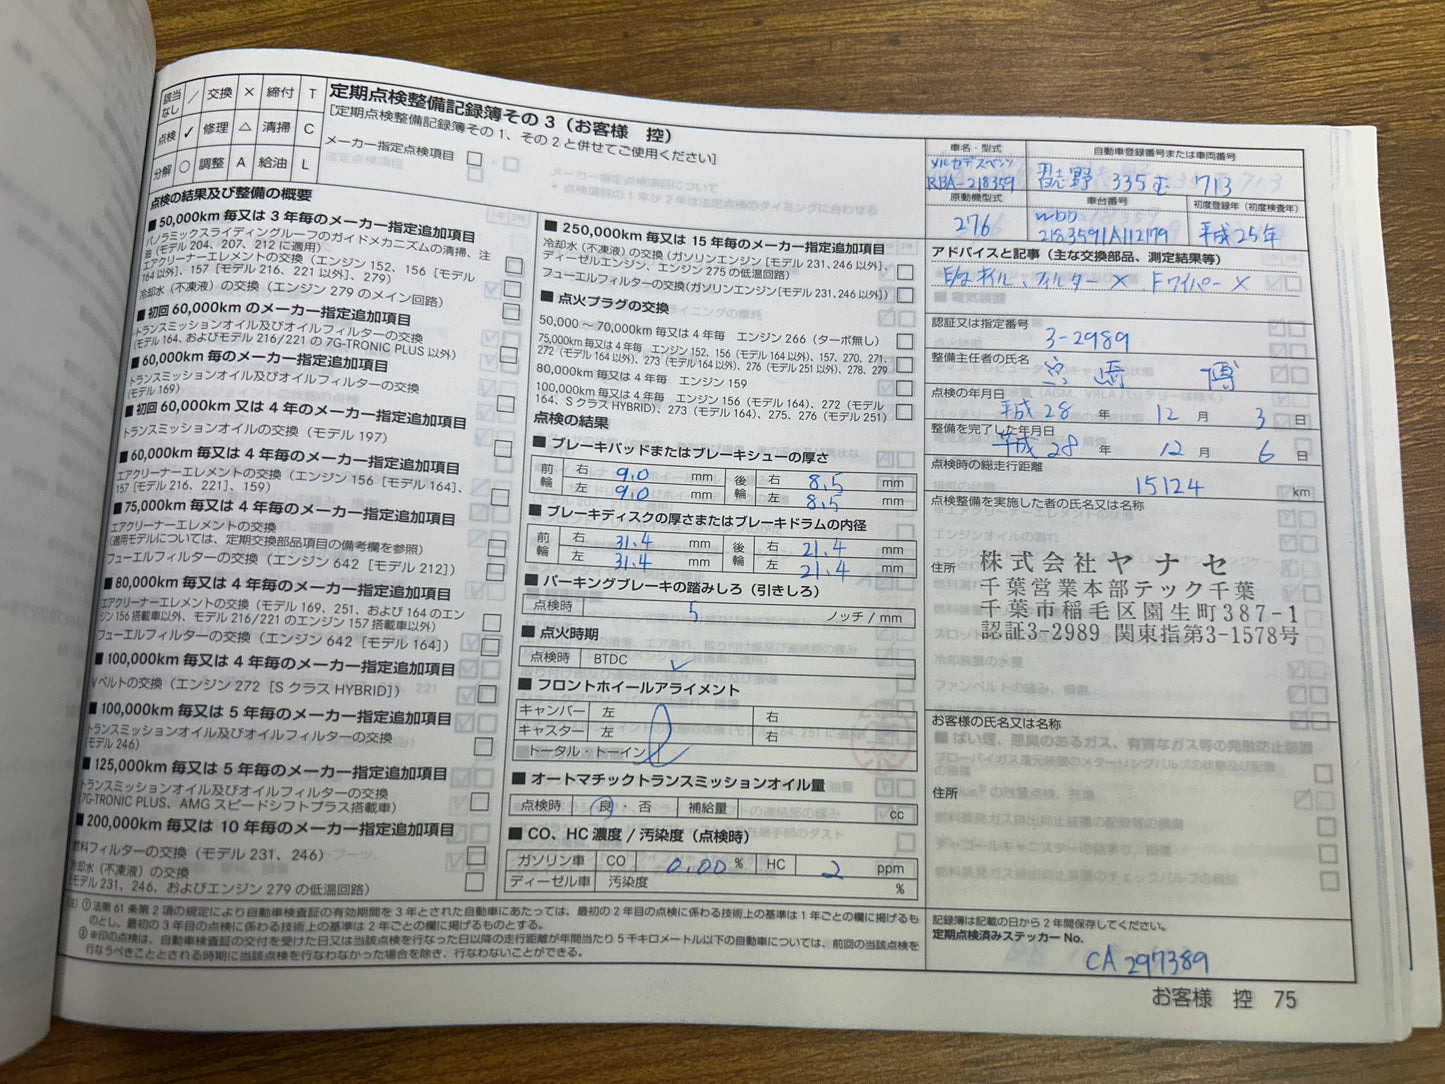 該当なし ／ 交換 × 締付 T
点検 ✓ 修理 △ 清掃 C
分解 ○ 調整 A 給油 L
定期点検整備記録簿その3（お客様　控）
[定期点検整備記録簿その1、その2と併せてご使用ください]
メーカー指定点検項目
点検の結果及び整備の概要
■ 50,000km 毎又は 3 年毎のメーカー指定追加項目
パノラミックスライディングルーフのガイドメカニズムの清掃、注
油（モデル 204、207、212 に適用）
エアクリーナーエレメントの交換（エンジン 152、156［モデル
164 以外］、157［モデル 216、221 以外］、279）
冷却水（不凍液）の交換（エンジン 279 のメイン回路）
■ 初回 60,000km のメーカー指定追加項目
トランスミッションオイル及びオイルフィルターの交換
（モデル 164、およびモデル 216/221 の 7G-TRONIC PLUS 以外）
■ 60,000km 毎のメーカー指定追加項目
トランスミッションオイル及びオイルフィルターの交換
（モデル 169）
■ 初回 60,000km 又は 4 年毎のメーカー指定追加項目
トランスミッションオイルの交換（モデル 197）
■ 60,000km 毎又は 4 年毎のメーカー指定追加項目
エアクリーナーエレメントの交換（エンジン 156［モデル 164］、
157［モデル 216、221］、159）
■ 75,000km 毎又は 4 年毎のメーカー指定追加項目
エアクリーナーエレメントの交換
（適用モデルについては、定期交換部品項目の備考欄を参照）
フューエルフィルターの交換（エンジン 642［モデル 212］）
■ 80,000km 毎又は 4 年毎のメーカー指定追加項目
エアクリーナーエレメントの交換（モデル 169、251、および 164 のエン
ジン 156 搭載車以外、モデル 216/221 のエンジン 157 搭載車以外）
フューエルフィルターの交換（エンジン 642［モデル 164］）
■ 100,000km 毎又は 4 年毎のメーカー指定追加項目
Vベルトの交換（エンジン 272［S クラス HYBRID］）
■ 100,000km 毎又は 5 年毎のメーカー指定追加項目
トランスミッションオイル及びオイルフィルターの交換
（モデル 246）
■ 125,000km 毎又は 5 年毎のメーカー指定追加項目
トランスミッションオイル及びオイルフィルターの交換
（7G-TRONIC PLUS、AMG スピードシフトプラス搭載車）
■ 200,000km 毎又は 10 年毎のメーカー指定追加項目
燃料フィルターの交換（モデル 231、246）
冷却水（不凍液）の交換
（モデル 231、246、およびエンジン 279 の低温回路）
■ 250,000km 毎又は 15 年毎のメーカー指定追加項目
冷却水（不凍液）の交換（ガソリンエンジン［モデル 231、246 以外］、
ディーゼルエンジン、エンジン 275 の低温回路）
フューエルフィルターの交換（ガソリンエンジン［モデル 231、246 以外］）
■ 点火プラグの交換
50,000 ～ 70,000km 毎又は 4 年毎　エンジン 266（ターボ無し）
75,000km 毎又は 4 年毎　エンジン 152、156（モデル 164 以外）、157、270、271、
272（モデル 164 以外）、273（モデル 164 以外）、276（モデル 251 以外）、278、279
80,000km 毎又は 4 年毎　エンジン 159
100,000km 毎又は 4 年毎　エンジン 156（モデル 164）、272（モデル
164、S クラス HYBRID）、273（モデル 164）、275、276（モデル 251）
点検の結果
■ ブレーキパッドまたはブレーキシューの厚さ
前輪 右 9.0 mm 後輪 右 8.5 mm
左 9.0 mm 左 8.5 mm
■ ブレーキディスクの厚さまたはブレーキドラムの内径
前輪 右 31.4 mm 後輪 右 21.4 mm
左 31.4 mm 左 21.4 mm
■ パーキングブレーキの踏みしろ（引きしろ）
点検時 5 ノッチ / mm
■ 点火時期
点検時 BTDC ✓
■ フロントホイールアライメント
キャンバー 左 右
キャスター 左 右
トータル・トーイン
■ オートマチックトランスミッションオイル量
点検時 良 ・ 否 補給量 cc
■ CO、HC 濃度 / 汚染度（点検時）
ガソリン車 CO 0.00 % HC 2 ppm
ディーゼル車 汚染度 %
注）① 法第 61 条第 2 項の規定により自動車検査証の有効期間を 3 年とされた自動車にあたっては、最初の 2 年目の点検に係わる技術上の基準は 1 年ごとの欄に掲げるも
のとし、最初の 3 年目の点検に係る技術上の基準は 2 年ごとの欄に掲げるものとする。
② ※印の点検は、自動車検査証の交付を受けた日又は当該点検を行なった日以降の走行距離が年間当たり 5 千キロメートル以下の自動車については、前回の当該点検を
行なうべきこととされる時期に当該点検を行なわなかった場合を除き、行なわないことができる。
車名・型式 自動車登録番号または車両番号
メルセデスベンツ
RBA-218359 習志野 335 む 713
原動機型式 車台番号 初度登録年（初度検査年）
276 WDD 2183591A112179 平成25年
アドバイスと記事（主な交換部品、測定結果等）
E/gオイル、フィルター × Fワイパー ×
認証又は指定番号
3-2989
整備主任者の氏名
宮崎　博
点検の年月日
平成28 年 12 月 3 日
整備を完了した年月日
平成28 年 12 月 6 日
点検時の総走行距離
15124 km
点検整備を実施した者の氏名又は名称
株式会社ヤナセ
住所 千葉営業本部テック千葉
千葉市稲毛区園生町387-1
認証3-2989 関東指第3-1578号
お客様の氏名又は名称
住所
記録簿は記載の日から 2 年間保存してください。
定期点検済みステッカー No.
CA 297389
お客様　控　75